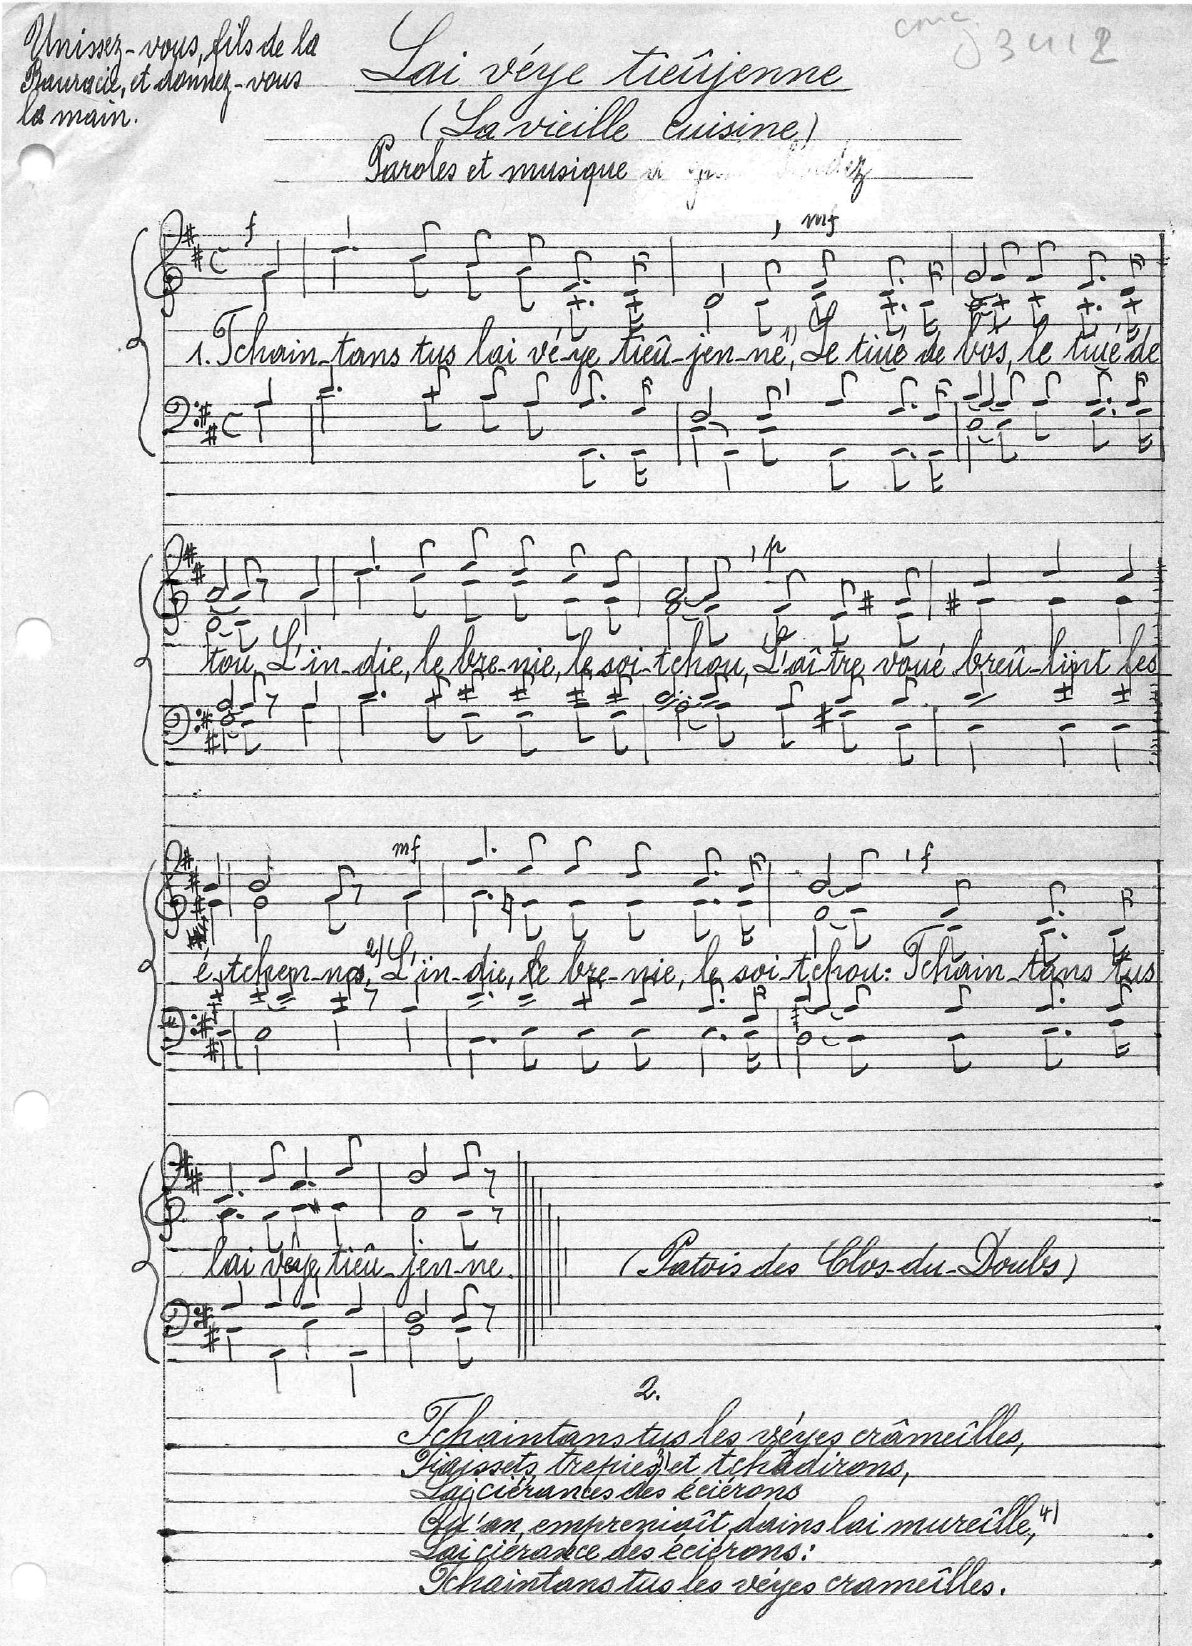 Unissez-vous, fils de la
Rauracie, et donnez-vous
la main.
Lai véye tieûjenne
(La vieille cuisine)
Paroles et musique
f
mf
1. Tchain-tans tus lai vé-ye tieû-jen-ne, 1) Le tiué de bôs, le tiué de
p
tôu, L'ïn-die, le bre-nie, le soi-tchou, L'aître voué breû-lïnt les
mf
f
é-tchen-nes, 2) L'ïn-die, le bre-nie, le soi-tchou: Tchain-tans tus
lai véye tieû-jen-ne.
(Patois des Clos-du-Doubs)
2.
Tchaintans tus les véyes crâmeîlles,
trepies 3) et tchâdirons,
Lai ciérance des éciérons
Qu'an empreniaît dains lai mureîlle, 4)
Lai ciérance des éciérons:
Tchaintans tus les véyes crameîlles.